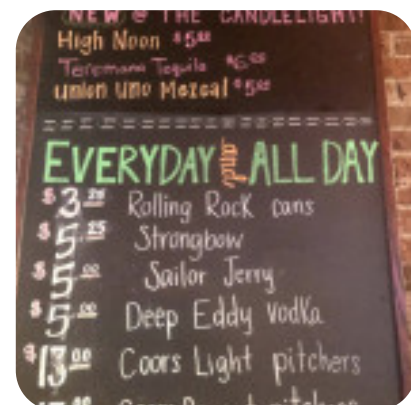 NEW @ THE CANDLELIGHT!
High Noon $5.00
Teremana Tequila $6.00
Union Uno Mezcal $5.00
EVERYDAY and ALL DAY
$3.25 Rolling Rock cans
$5.25 Strongbow
$5.00 Sailor Jerry
$5.00 Deep Eddy Vodka
$13.00 Coors Light pitchers